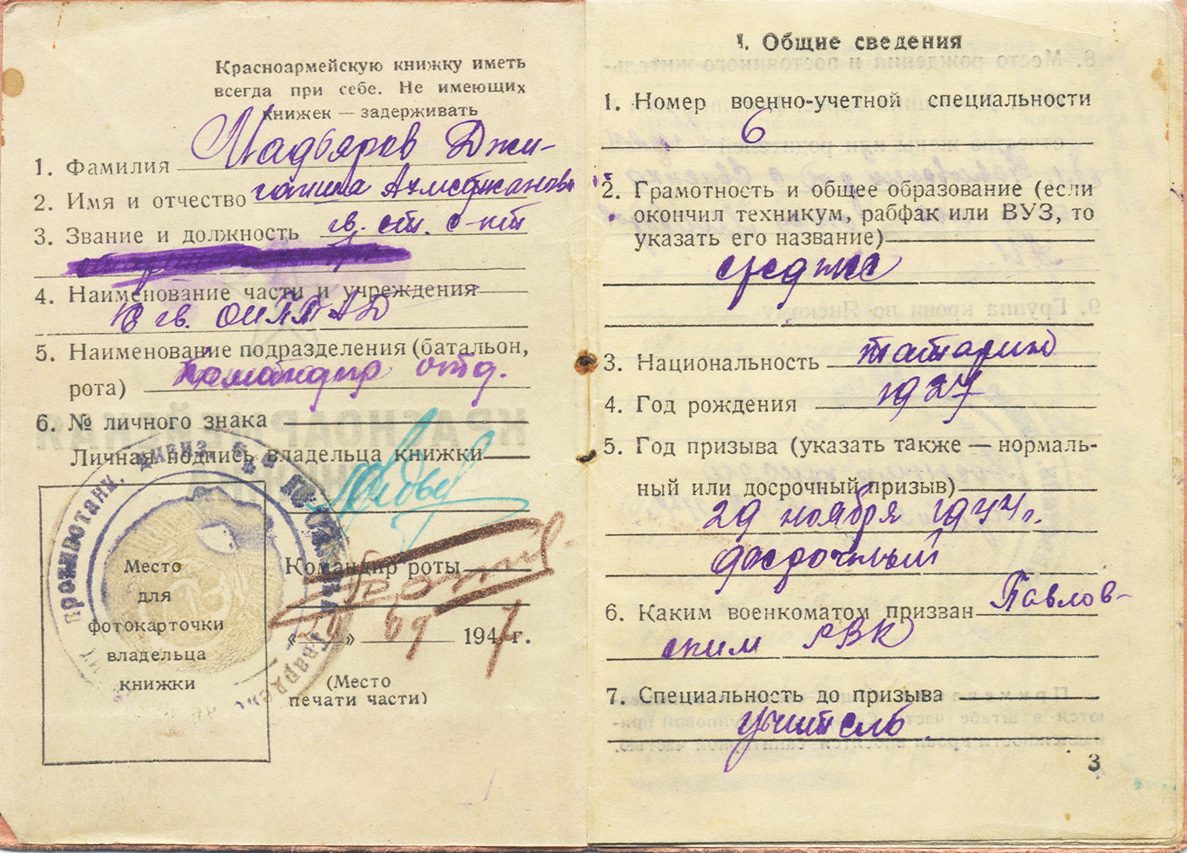 Красноармейскую книжку иметь
всегда при себе. Не имеющих
книжек — задерживать
1. Фамилия Мадьяров Джи-
2. Имя и отчество ганша Ахмеджанович
3. Звание и должность гв. ст. с-нт
4. Наименование части и учреждения
гв. ОИПТАД
5. Наименование подразделения (батальон,
рота) Командир отд.
6. № личного знака
Личная подпись владельца книжки
Место
для
фотокарточки
владельца
книжки
Командир роты
« » 09 1947 г.
(Место
печати части)
1. Общие сведения
1. Номер военно-учетной специальности
6
2. Грамотность и общее образование (если
окончил техникум, рабфак или ВУЗ, то
указать его название)
среднее
3. Национальность татарин
4. Год рождения 1927
5. Год призыва (указать также — нормаль-
ный или досрочный призыв)
29 ноября 1944 г.
досрочный
6. Каким военкоматом призван Павлов-
ским РВК
7. Специальность до призыва
учитель
3